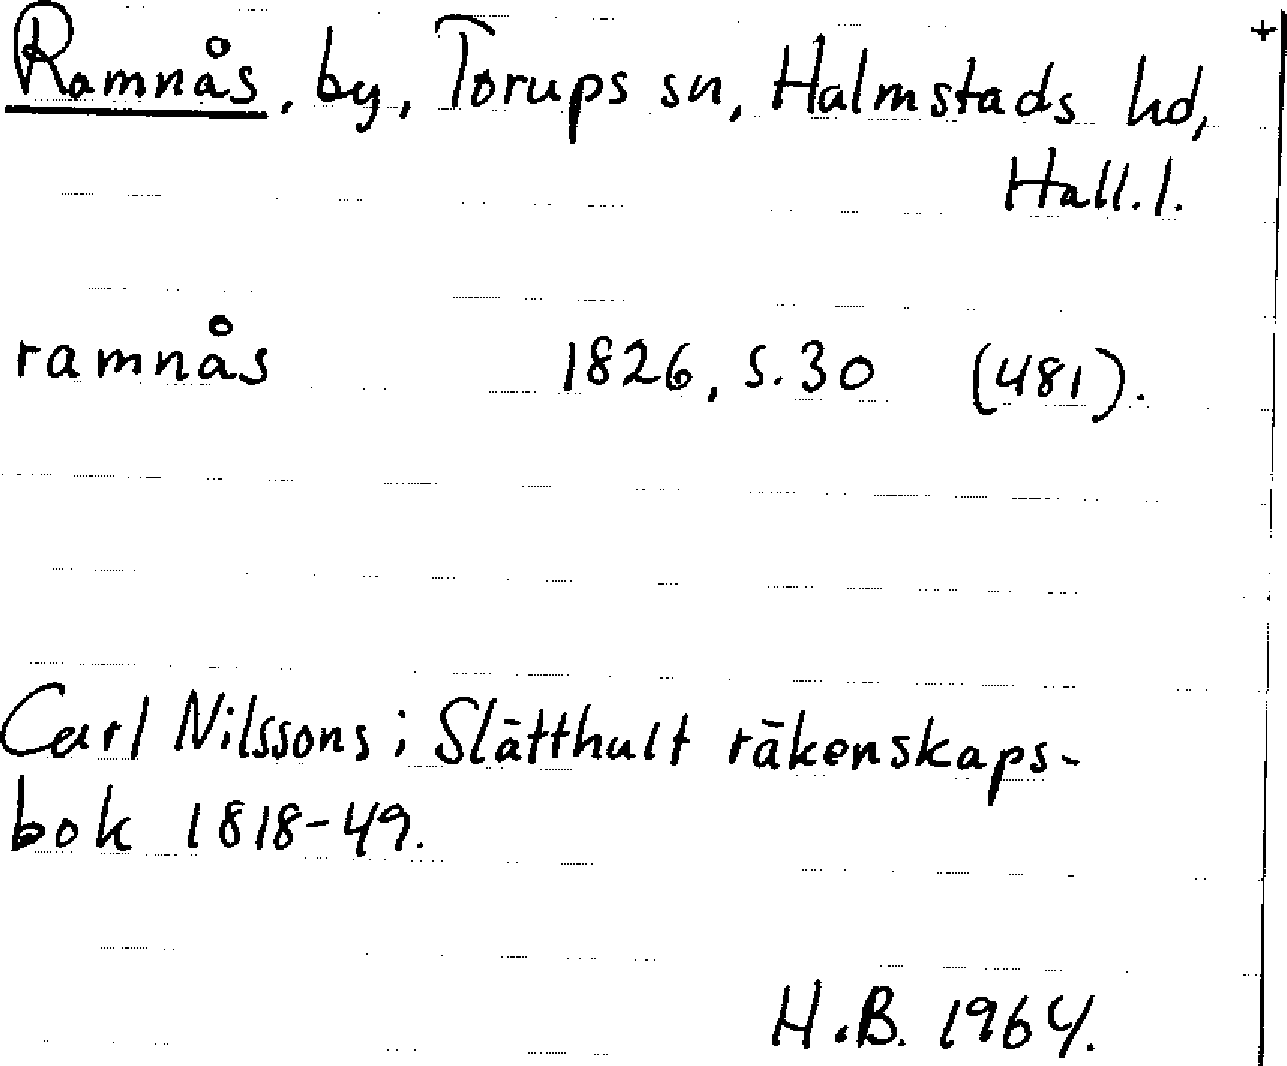 +
Ramnås, by, Torups sn, Halmstads hd,
Hall. l.
ramnås 1826, s. 30 (481).
Carl Nilssons i Slätthult räkenskaps-
bok 1818-49.
H.B. 1964.